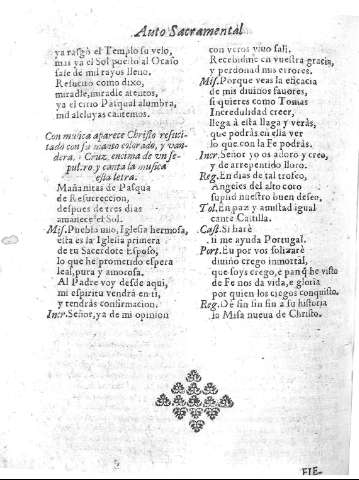 Auto Sacramental
ya rasgò el Templo su velo,
mas ya el Sol puesto al Ocaso
sale de mil rayos lleno.
Resucito como dixo,
miradle, miradle atentos,
ya el cirio Pasqual alumbra,
mil aleluyas cantemos.
Con musica aparece Christo resuci-
tado con su manto colorado, y van-
dera, Cruz, encima de vn se-
pulcro y canta la musica
esta letra.
Mañanitas de Pasqua
de Resurreccion,
despues de tres dias
amanece el Sol.
Mis. Puebla uno, Iglesia hermosa,
esta es la Iglesia primera
de tu Sacerdote Esposo,
lo que he prometido espera
leal, pura y amorosa.
Al Padre voy desde aqui,
mi espiritu vendrà en ti,
y tendràs confirmacion.
Incr. Señor, ya de mi opinion
con veros vivo sali,
Recebidme en vuestra gracia,
y perdonad mis errores.
Mis. Porque veas la eficacia
de mis divinos favores,
si quieres como Tomas
Incredulidad creer,
llega à esta llaga y veràs,
que podràs en ella ver
lo que con la Fe podràs.
Incr. Señor yo os adoro y creo,
y de arrepentido lloro.
Reg. En dias de tal trofeo,
Angeles del alto coro
supla nuestro buen deseo,
Tol. En paz y amistad igual
cante Castilla.
Cast. Si harè
si me ayuda Portugal.
Port. Eu por vos soltaarè
divino crego inmortal,
que soys crego, e pan q̃ he visto
de Fe nos da vida, e gloria
por quien los ciegos conquisto.
Reg. Dè fin sin fin a su historia
la Missa nueua de Christo.
FIE-